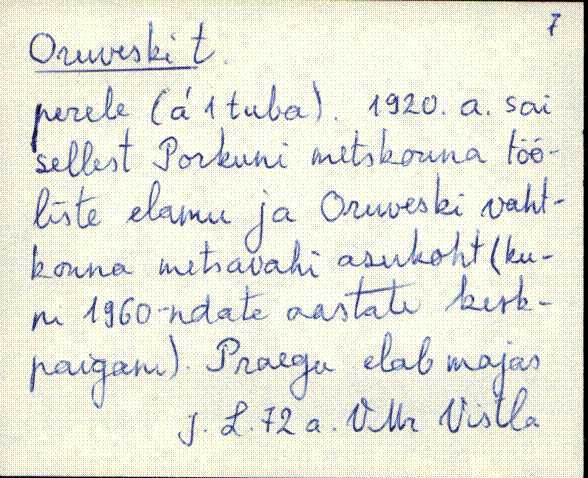 7
Oruveski t.
perele (á 1 tuba). 1920. a. sai
sellest Porkuni metskonna töö-
liste elamu ja Oruveski vaht-
konna metsavahi asukoht (ku-
ni 1960-ndate aastate kesk-
paigani). Praegu elab majas
J. L. 72 a. VMr Vistla